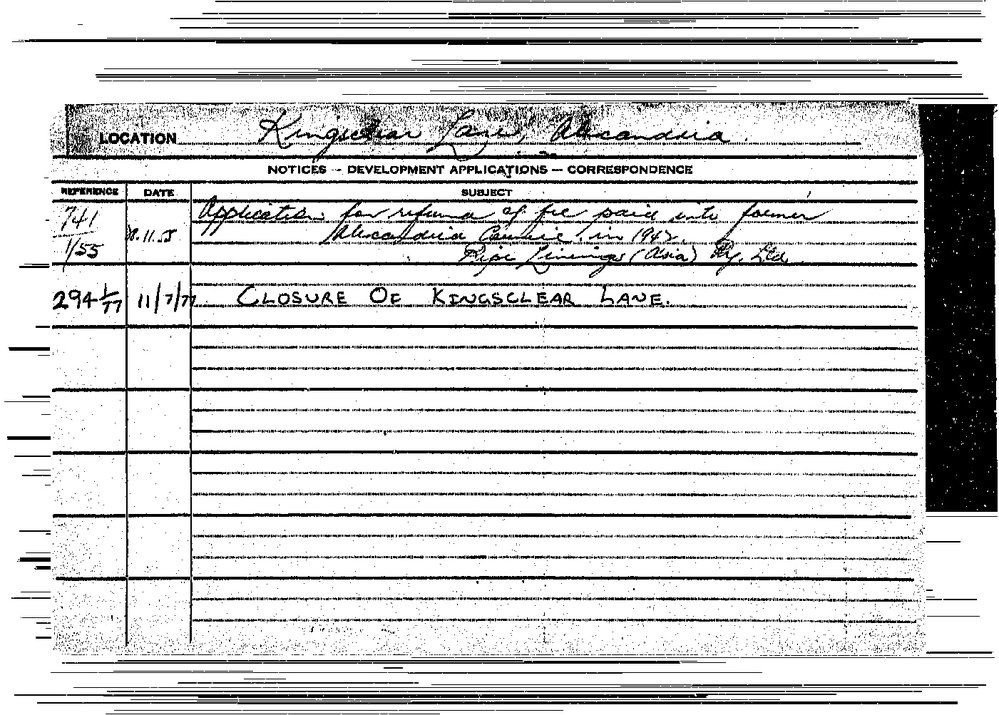 LOCATION Kingsclear Lane, Alexandria.
NOTICES — DEVELOPMENT APPLICATIONS — CORRESPONDENCE
REFERENCE DATE SUBJECT
741 Application for refund of fee paid into former
1/55 .11.5 Alexandria Council in 1942.
Pipe Linings (Asia) Pty. Ltd.
294 1/77 11/7/77 CLOSURE OF KINGSCLEAR LANE.